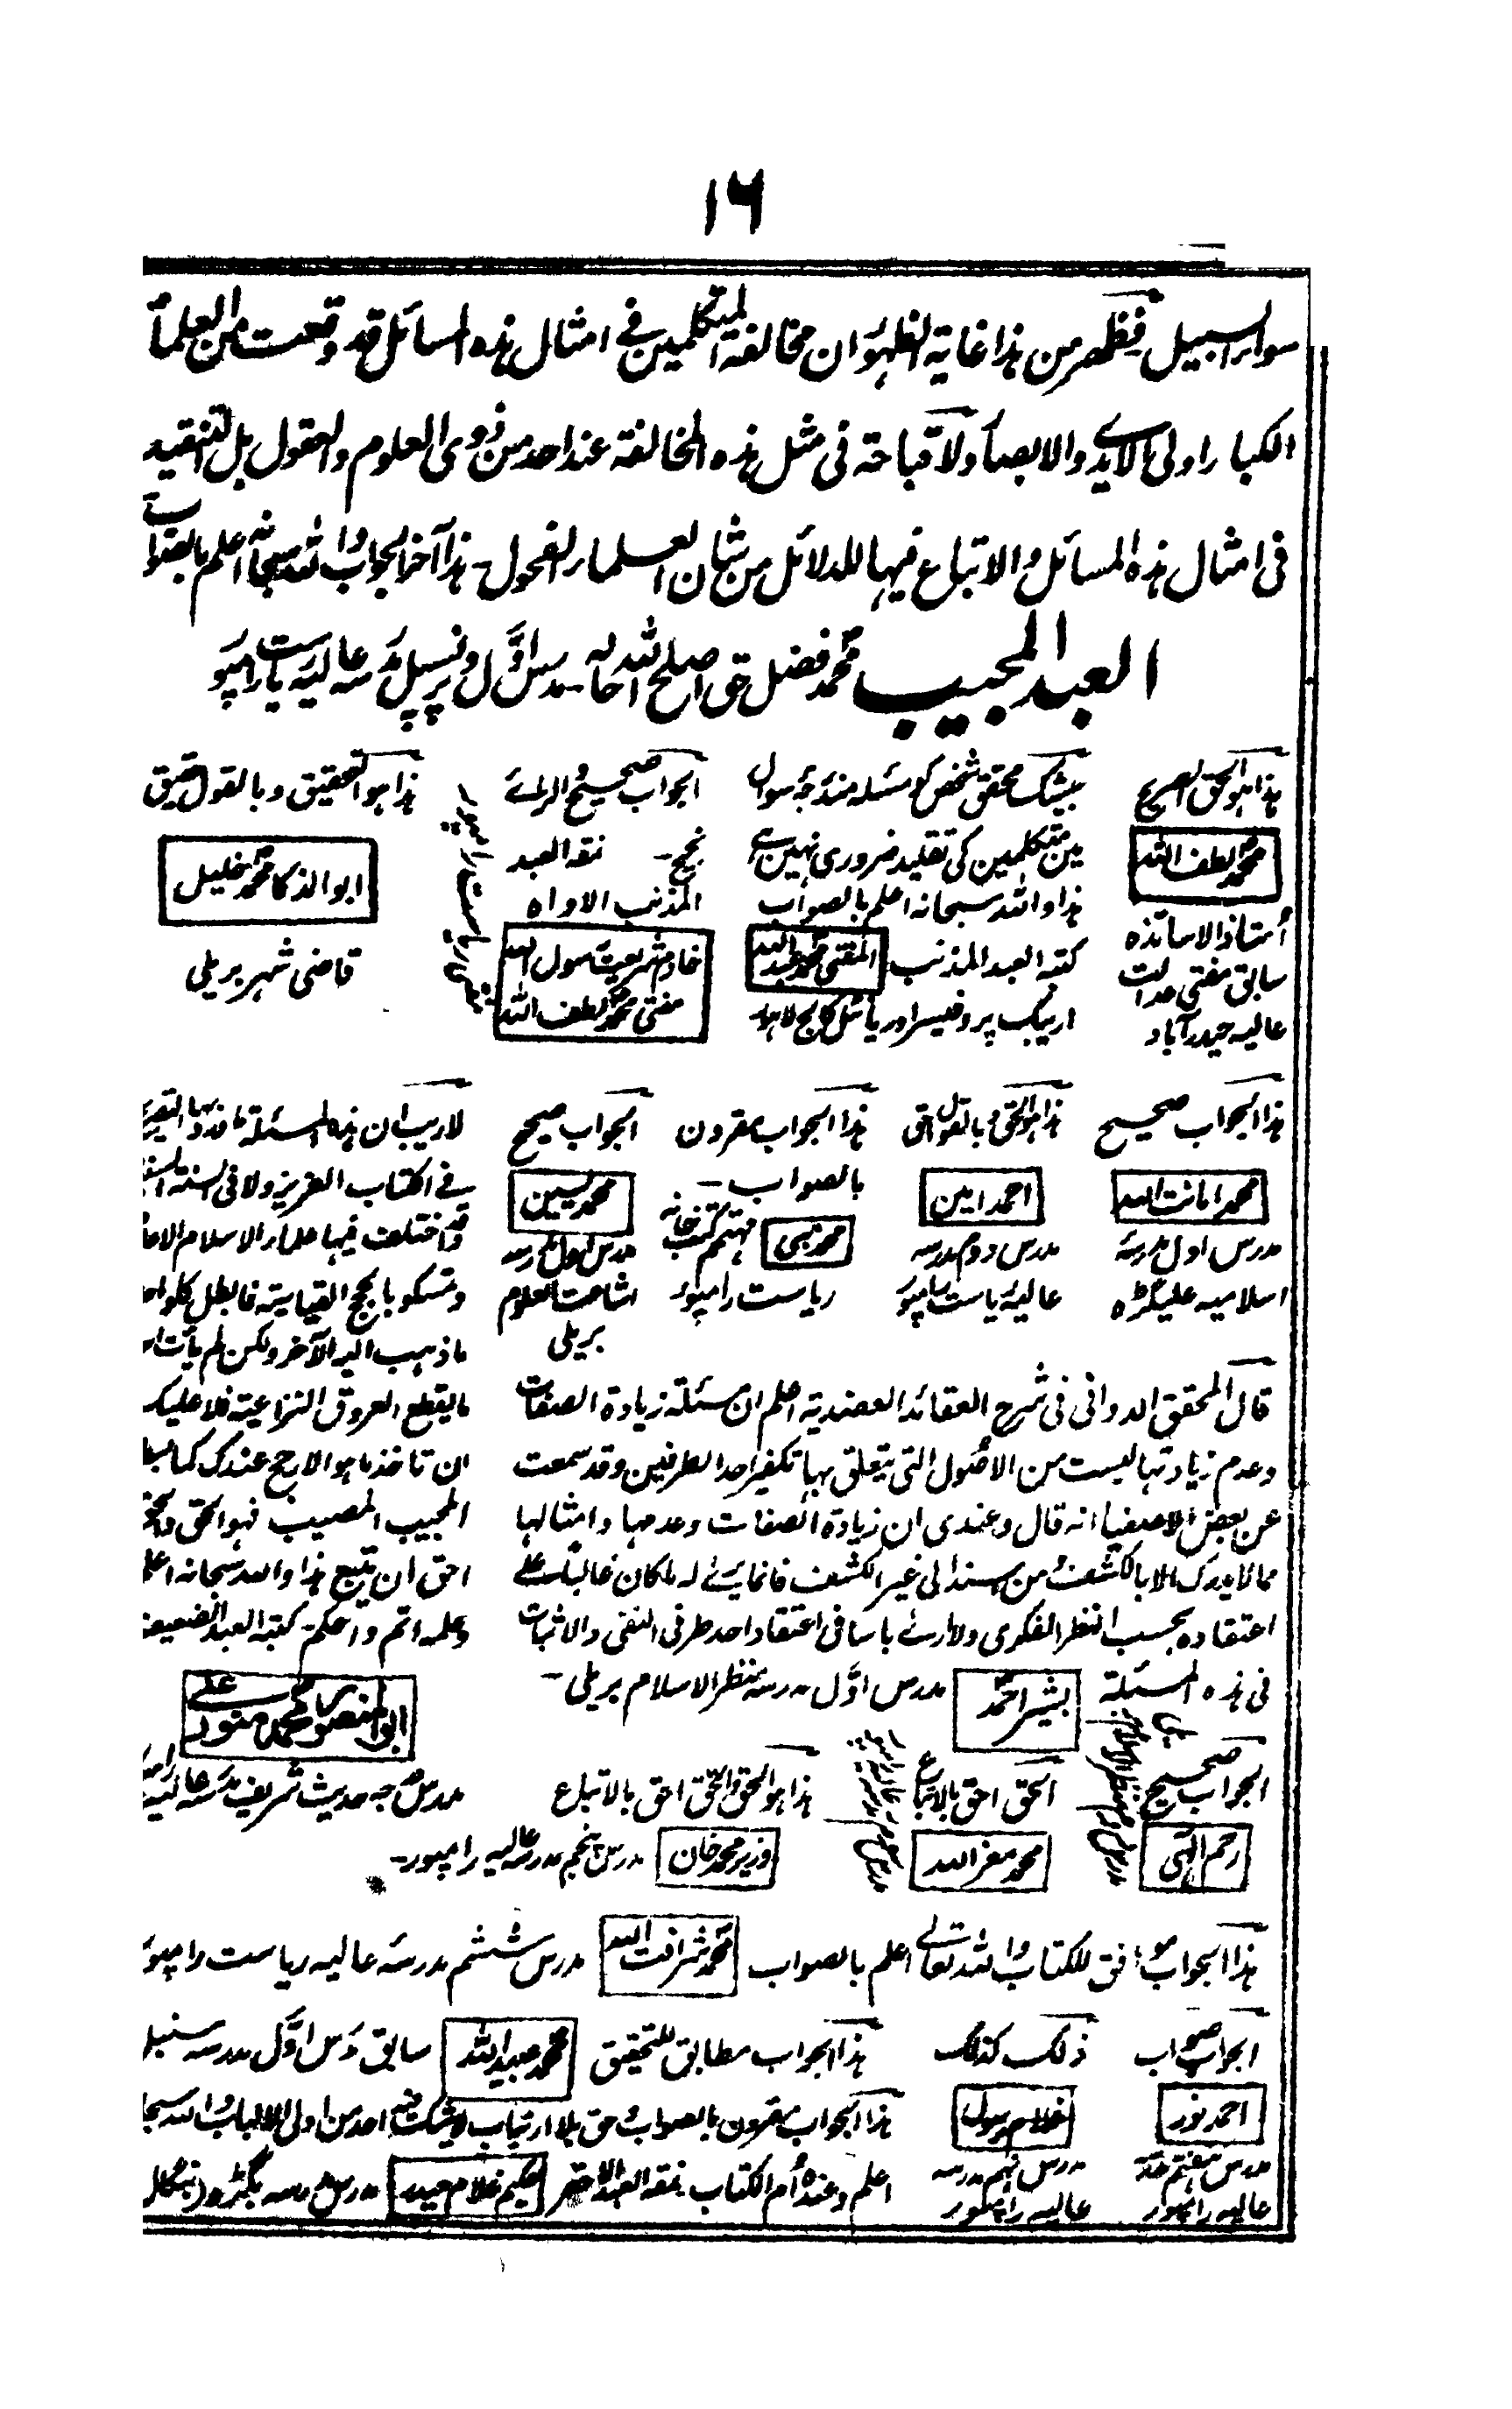 ۱۶
سواء السبیل فظهر من هذا غایة الظهور ان مخالفة المتکلمین فی امثال هذه المسائل قد وقعت من العلماء
الکبار اولی الایدی والابصار ولا قباحة فی مثل هذه المخالفة عند احد من ذوی العلوم والعقول بل التنقید
فی امثال هذه المسائل والاتباع فیها للدلائل من شان العلماء الفحول۔ هذا آخر الجواب والله سبحانه اعلم بالصواب
العبد المجیب محمد فضل حق اصلح الله حاله۔ مدرس اوّل و پرنسپل مدرسه عالیه ریاست رامپور
هذا هو الحق الصریح
محمد لطف الله
اُستاذ الاساتذه
سابق مفتی عدالت
عالیه حیدرآباد
بیشک محقق شخص کو مسئله مندرجه سوال
مین متکلمین کی تقلید ضروری نہین ہے
هذا والله سبحانه اعلم بالصواب
کتبه العبد المذنب المفتی محمد عبد الله
اربیک پروفیسر اوریانٹل کالج لاہور
الجواب صحیح والرائے
نجیح۔ نمقه العبد
المذنب الاواه
خادم شریعت رسول الله
مفتی محمد لطف الله
هذا هو التحقیق وبالقول حقیق
ابو الذکا محمد خلیل
قاضی شہر بریلی
هذا الجواب صحیح
محمد امانت الله
مدرس اول مدرسه
اسلامیه علیگڑه
هذا هو الحق وبالقول احق
احمد امین
مدرس دوم مدرسه
عالیه ریاست رامپور
هذا الجواب مقرون
بالصواب۔
محمد نبی مہتمم کتب خانه
ریاست رامپور
الجواب صحیح
محمد یسین
مدرس اول مدرسه
اشاعت العلوم
بریلی
لاریب ان هذه المسئلة
فے الکتاب العزیز ولا فی السنة
وقد اختلفت فیها علماء الاسلام
وتمسکو بالحجج القیاسیة فابطل کلواحد
ما ذهب الیه الآخر ولکن لم یأت
ما یقطع العروق النزاعیة فلا علیک
ان تاخذ ما هو الارجح عندک کما
المجیب المصیب فهو الحق
احق ان یتبع هذا والله سبحانه اعلم
وعلمه اتم واحکم۔ کتبه العبد الضعیف
ابو المنصور محمد منور علی
مدرس درجه حدیث شریف مدرسه عالیه
قال المحقق الدوانی فی شرح العقائد العضدیة اعلم ان مسئلة زیادة الصفات
وعدم زیادتها لیست من الاصول التی یتعلق بها تکفیر احد الطرفین وقد سمعت
عن بعض الاصفیا انه قال وعندی ان زیادة الصفات وعدمها وامثالها
مما لا یدرک الا بالکشف ومن اسند الی غیر الکشف فانما یرئے له ما کان غالبا علے
اعتقاده بحسب النظر الفکری ولا ارئے باسا فی اعتقاد احد طرفی النفی والاثبات
فی هذه المسئلة بشیر احمد مدرس اوّل مدرسه منظر الاسلام بریلی۔
الجواب صحیح
رحم الٰہی
الحق احق بالاتباع
محمد معز الله
هذا هو الحق والحق احق بالاتباع
وزیر محمد خان مدرس پنجم مدرسه عالیه رامپور۔
هذا الجواب موافق للکتاب والله تعالے اعلم بالصواب محمد شرافت الله مدرس ششم مدرسه عالیه ریاست رامپور
الجواب صواب
احمد نور
مدرس ہفتم مدرسه
عالیه رامپور
ذلک کذلک
غلام رسول
مدرس نہم مدرسه
عالیه رامپور
هذا الجواب مطابق للتحقیق محمد عبید الله سابق مدرس اوّل مدرسه
هذا الجواب مقرون بالصواب وحق بلا ارتیاب لا یشک فیه احد من اولی الالباب والله
اعلم وعنده اُم الکتاب نمقه العبد الاحقر حکیم غلام حیدر مدرس مدرسه